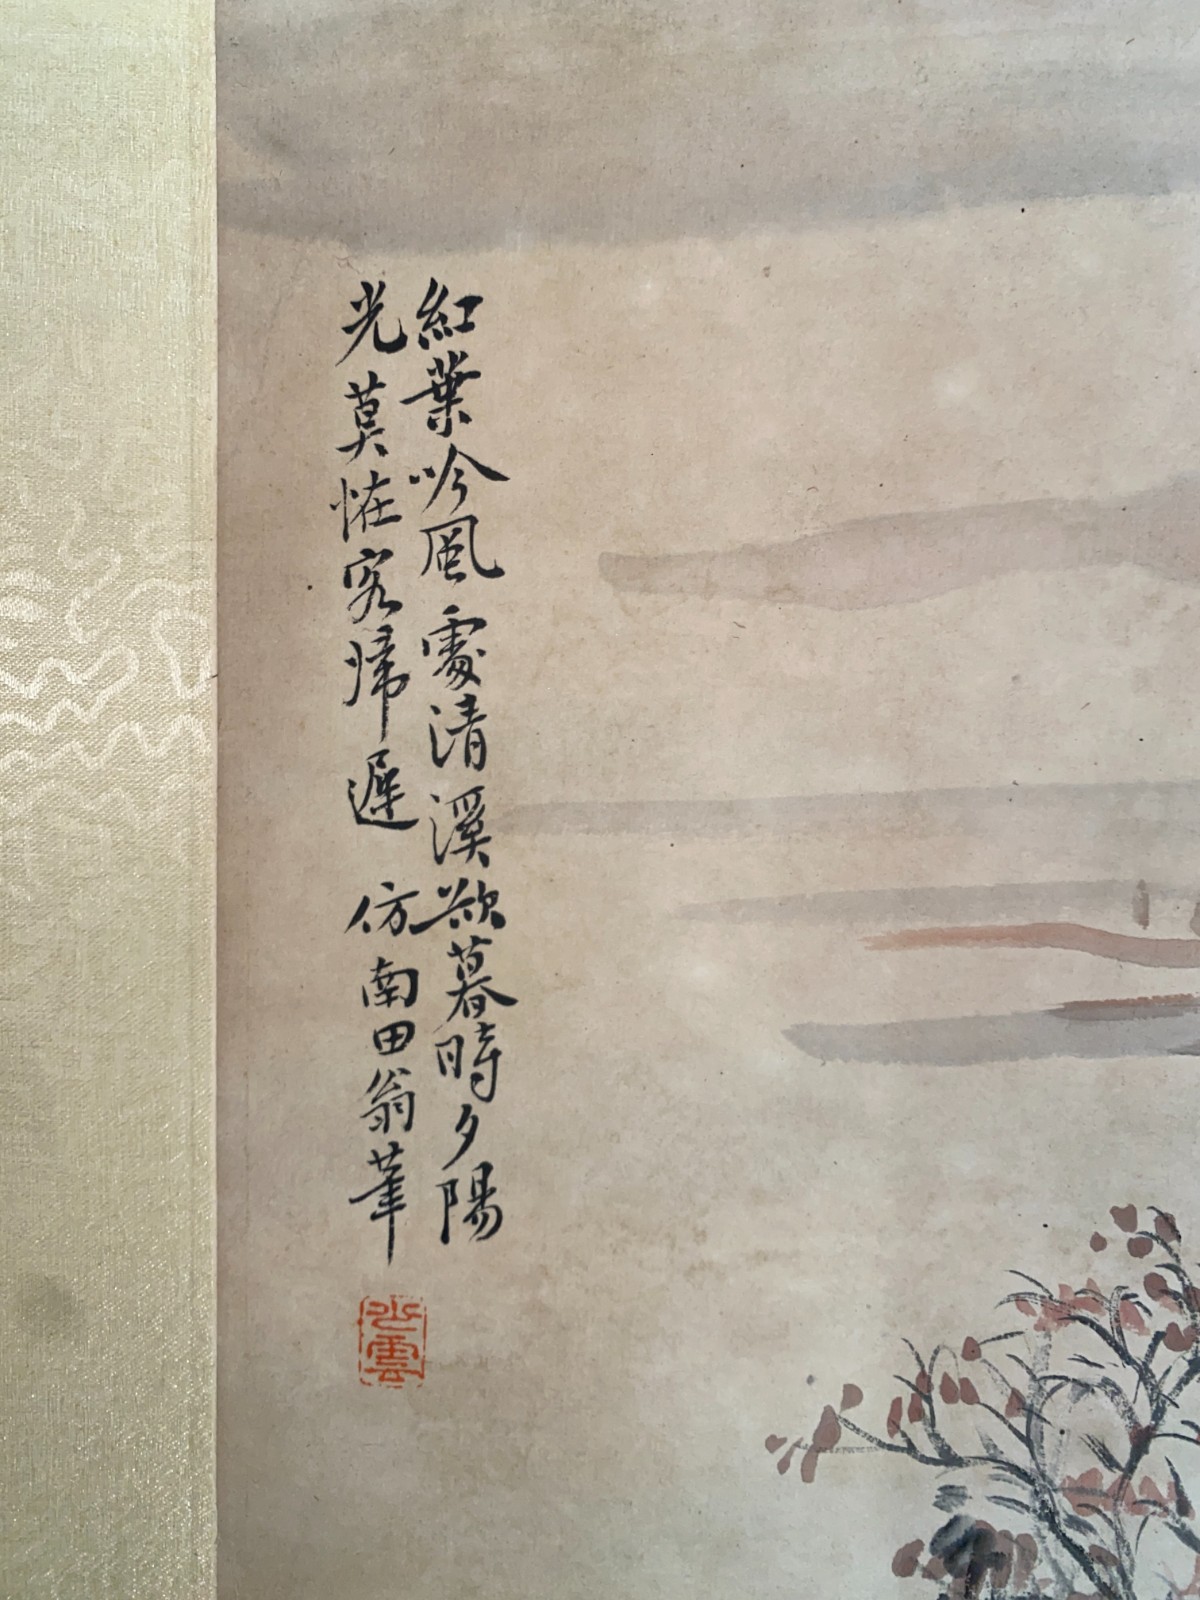 紅葉吟風處清溪欲暮時夕陽
光莫恠客歸遲 仿南田翁筆